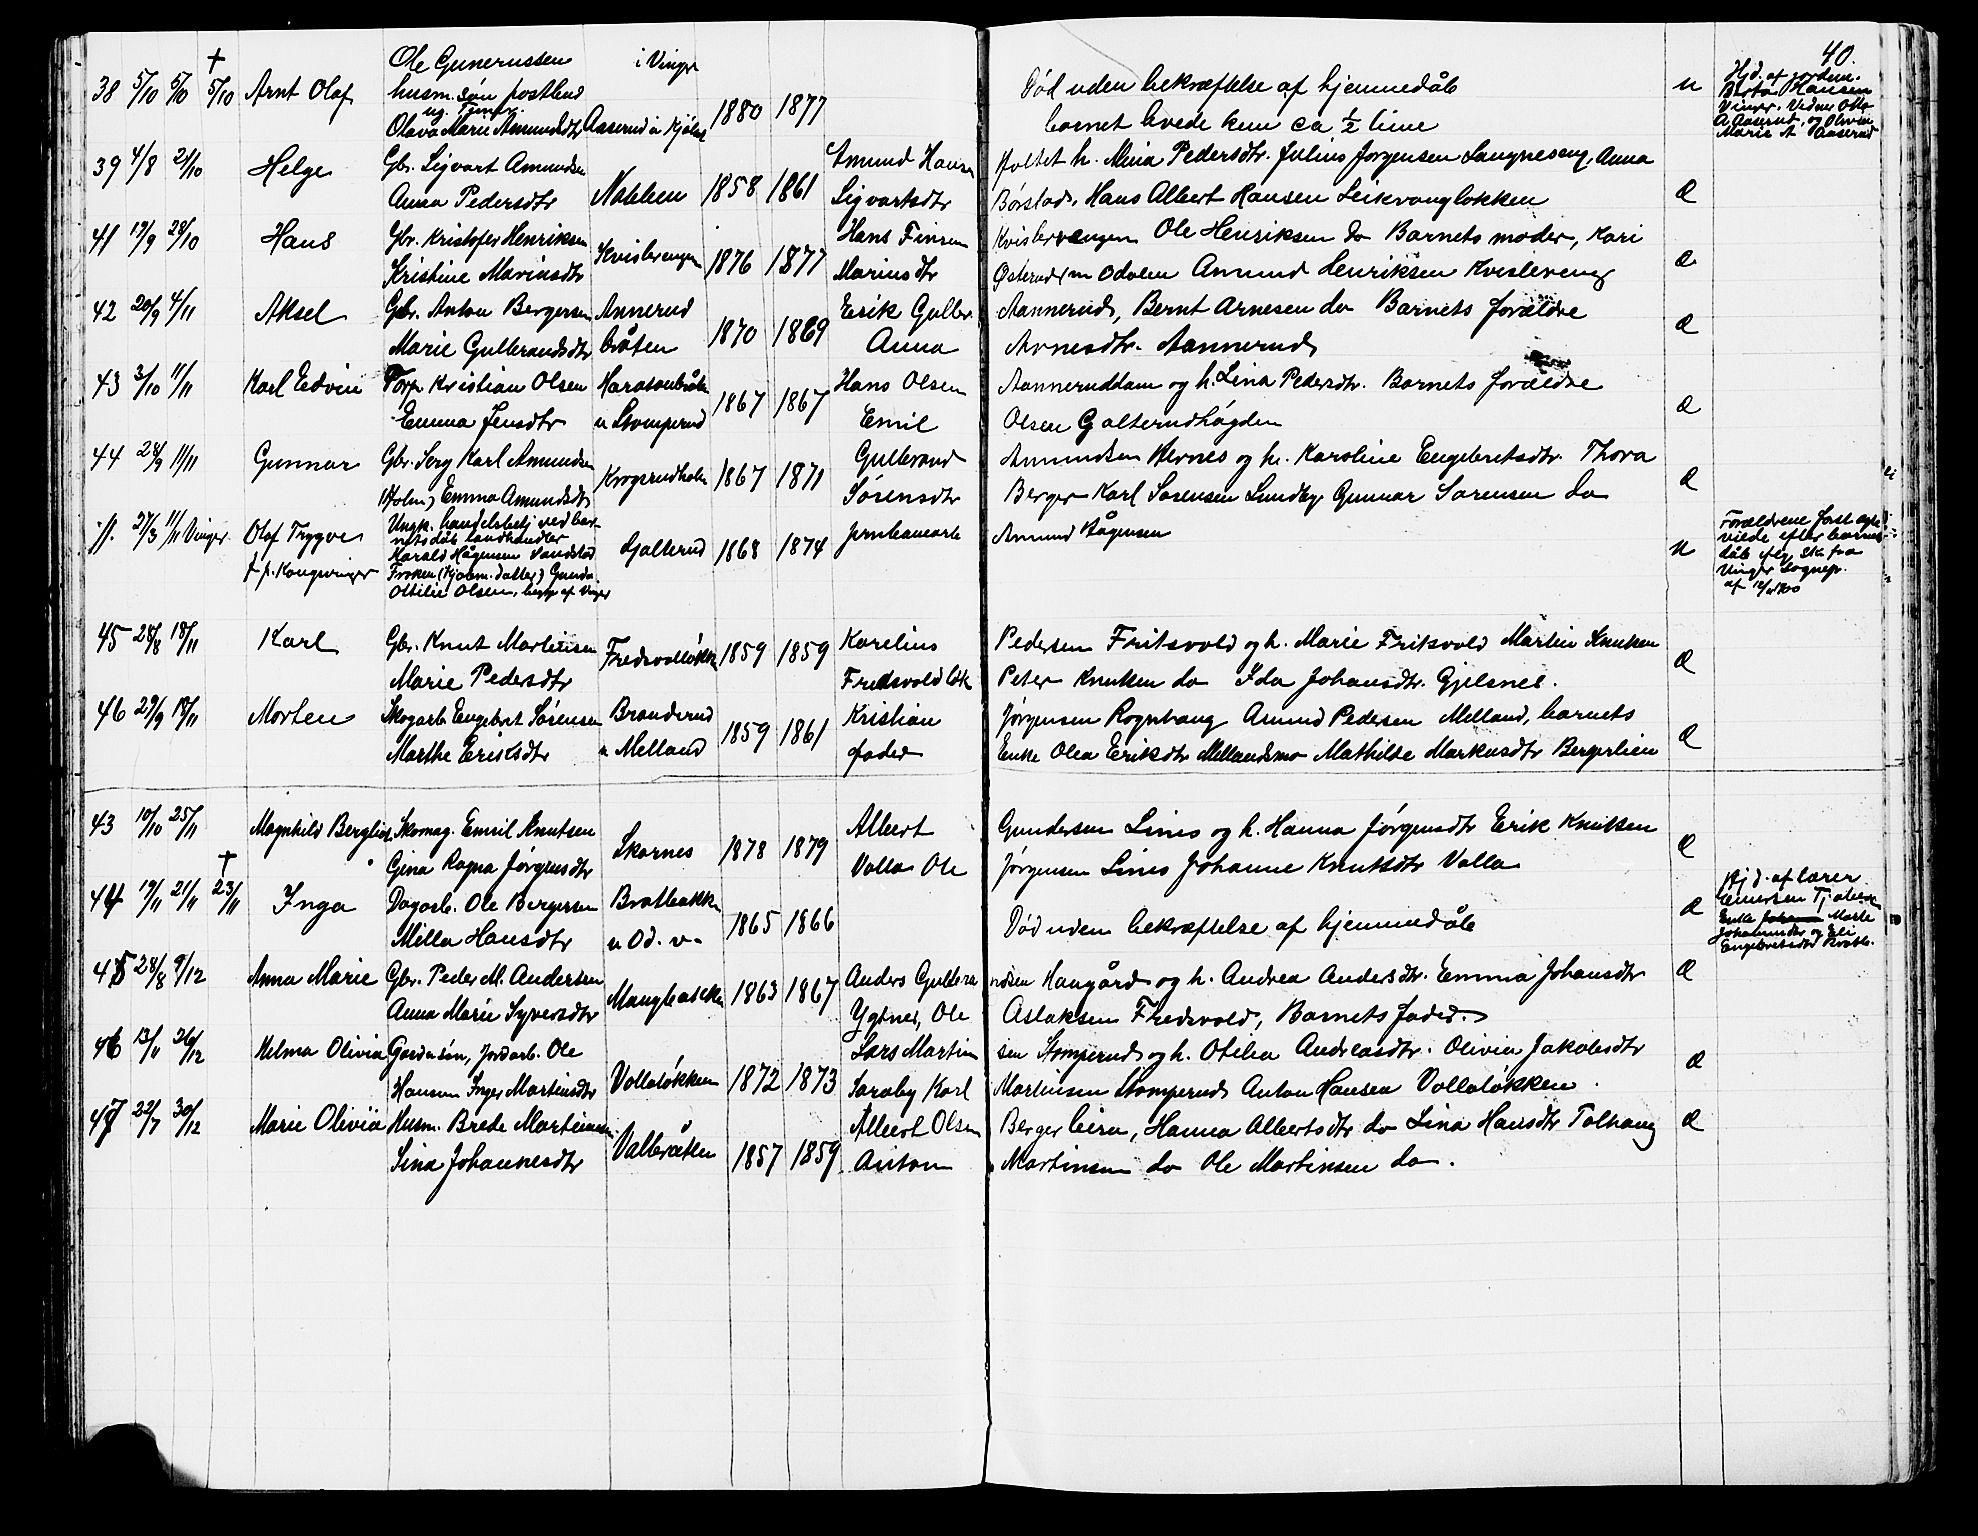 40.
38 5/10 5/10 † 5/10 Arnt Olaf Ole Gunerussen i Vinger 1880 1877 Død uden bekræftelse af hjemmedåb u Hjd. af jordem.
husm. søn postbud Berta Hansen
ug. Vinger. Vidner Otto
Olava Marie Amundsdtr Aaserud i Kjølen barnet levede kun ca ½ time A. Aaserud, og Olivia
Marie A Aaserud
39 4/8 21/10 Helge Gbr. Sigvart Amundsen Nabben 1858 1861 Amund Hansen Holtet h. Mina Pedersdtr. Julius Jørgensen Langneseng, Anna Æ
Anna Pedersdtr Sigvartsdtr Børstad, Hans Albert Hansen Leikvangløkken
41 19/9 28/10 Hans Gbr. Kristofer Henriksen Kvislerengen 1876 1877 Hans Finsen Kvislerengen Ole Henriksen do Barnets moder, Kari Æ
Kristine Mariusdtr Mariusdtr Østerud, n Odalen Amund Henriksen Kvislereng
42 20/9 4/11 Aksel Gbr. Anton Bergersen Annerud 1870 1869 Erik Gulbr. Aannerud, Bernt Arnesen do Barnets forældre Æ
Marie Gulbrandsdtr bråten Anna Arnesdtr. Aannerud
43 3/10 11/11 Karl Edvin Torp Kristian Olsen 1867 1867 Hans Olsen Aanneruddam og h. Lina Pedersdtr. Barnets forældre Æ
Emma Jensdtr u Stomperud Emil Olsen Galterudhøgden
44 24/9 11/11 Gunnar Gbr. Serg Karl Amundsen Krogsrudholm 1867 1871 Gulbrand Amundsen Hernes og h. Karoline Engebretsdtr. Thora Æ
(Holm) Emma Amundsdtr Sørensdtr Berger Karl Sørensen Lundby, Gunnar Sørensen do
27/3 11/11 Vinger Olaf Trygve Ungk. handelsbetj. ved bar- Galterud 1868 1874 Amund Hågensen u Forældrene først ægte-
f. p. Kongsvinger netsdåb landhandler viede efter barnets
Harald Hågensen Sandstad dåb iflg. Sk. fra
Frøken (Kjøbm. datter) Gunda Vinger Sognepr.
Ottilie Olsen, begge af Vinger af 12/11 1900
45 28/8 18/11 Karl Gbr. Knut Martinsen Fredsvolløkk. 1859 1859 Karelius Pedersen Fritsvold og h. Marie Fritsvold Martin Knutsen Æ
Marie Pedersdtr Fredsvoldløk Peter Knutsen do Ida Johansdtr. Gjelsnes.
46 29/9 18/11 Morten Skogarb. Engebret Sørensen Branderud 1859 1861 Kristian Jørgensen Rognhaug Amund Pedersen Melland, barnets Æ
Marthe Eriksdtr u Melland fader Enke Olea Eriksdtr Mellandsmo Mathilde Markusdtr Bergerlien
43 10/10 25/11 Magnhild Bergliot Skomag. Emil Knutsen Skarnes 1878 1879 Albert Gundersen Linis og h. Hanna Jørgensdtr Erik Knutsen Æ
Gina Ragna Jørgensdtr Valla Ole Jørgensen Linis Johanne Knutsdtr Valla
44 19/11 21/11 † 23/11 Inga Dagarb. Ole Bergersen Bratbakke 1865 1866 Død uden bekræftelse af hjemmedåb Æ Hjd. af lærer
Milla Hansdtr u Od. v. Einersen
Enke Marte
Johannesdtr og Eli
Engebretsdtr Bratb.
45 28/8 9/12 Anna Marie Gbr. Peder M. Andersen Mangbakken 1863 1867 Anders Gulbra ndsen Haugård og h. Andrea Andersdtr. Emma Johansdtr Æ
Anna Marie Syversdtr Ygtnes, Ole Aslaksen Fredsvold, Barnets fader.
46 13/11 26/12 Helma Olivia Gårdmsøn, Jordarb. Ole Volløkken 1872 1873 Lars Martin sen Stomperud og h. Otilia Andreasdtr. Olivia Jakobsdtr Æ
Hansen Inger Martinsdtr Saraby Karl Martinsen Stomperud Anton Hansen Volløkken.
47 22/7 30/12 Marie Olivia Husm. Brede Martinsen Valbråten 1857 1859 Albert Olsen Berger Hanna Albertsdtr do Lina Hansdtr Tolhaug Æ
Lina Johannesdtr Anton Martinsen do Ole Martinsen do.